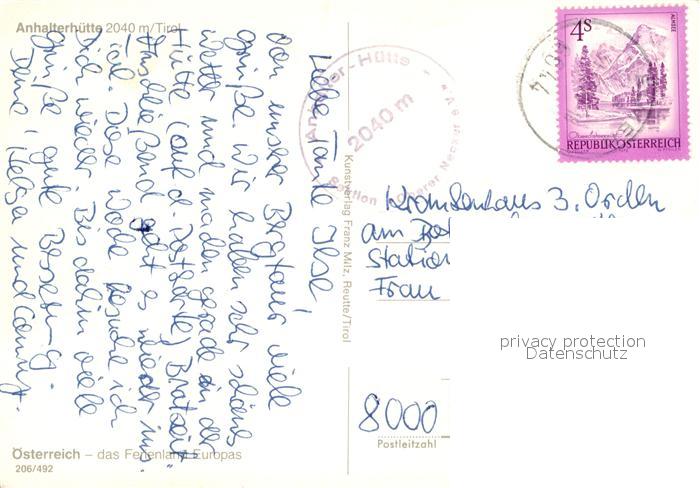 Anhalterhütte 2040 m/Tirol
Liebe Tante Ilse,
von unserer Bergtour viele
Grüße. Wir haben sehr schönes
Wetter und machen gerade in der
Hütte (auf d. Postkarte) Brotzeit.
Anschließend geht es wieder ins
Tal. Diese Woche besuche ich
Dich wieder. Bis dahin viele
Grüße, gute Besserung.
Deine Helga und
Österreich – das Ferienland Europas
206/492
Kunstverlag Franz Milz, Reutte/Tirol
er-Hütte
2040 m
4S
ALMSEE
REPUBLIK ÖSTERREICH
Krankenhaus 3. Orden
am
Station
Frau
privacy protection
Datenschutz
8000
Postleitzahl